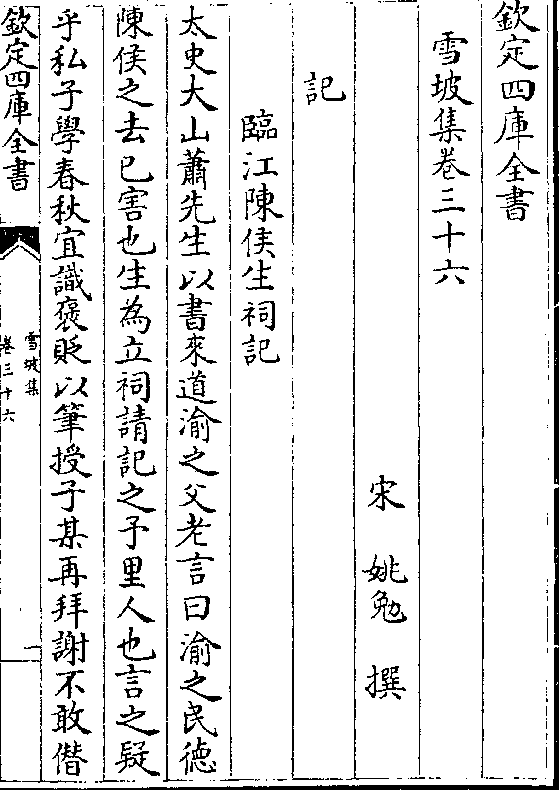 欽定四庫全書
雪坡集卷三十六
宋 姚勉 撰
記
臨江陳侯生祠記
太史大山蕭先生以書來道渝之父老言曰渝之民德
陳侯之去己害也生為立祠請記之予里人也言之疑
乎私子學春秋宜識褒貶以筆授子某再拜謝不敢僭
欽定四庫全書
雪坡集
卷三十六
一